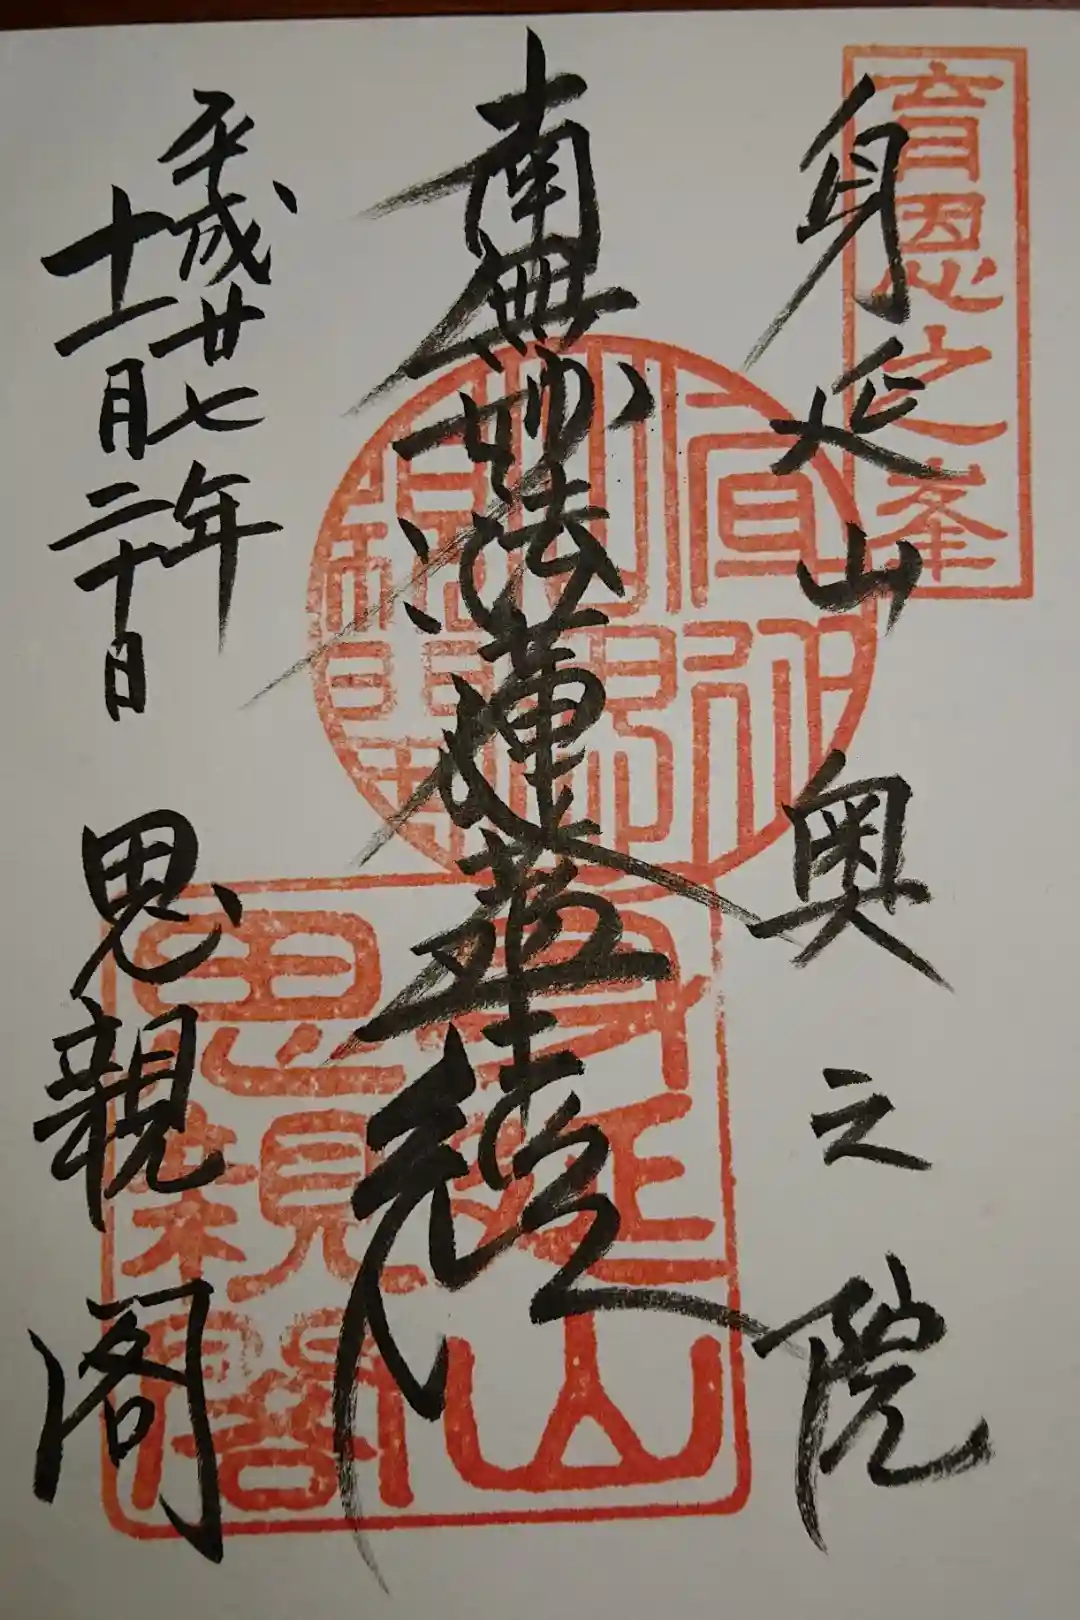 育恩之峯
身延山奥之院
南無妙法蓮華経
平成廿七年
十一月二十日
思親閣
身延山
思親閣